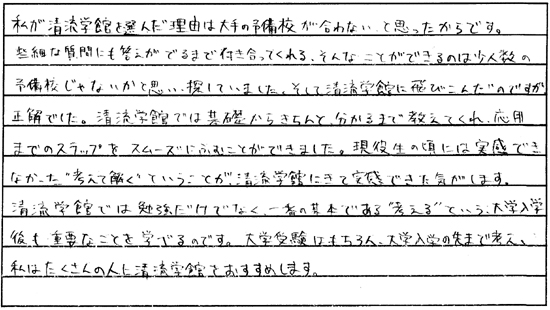 私が清流学館を選んだ理由は大手の予備校が合わない、と思ったからです。
些細な質問にも答えがでるまで付き合ってくれる、そんなことができるのは少人数の
予備校じゃないかと思い、探していました。そして清流学館に飛びこんだのですが
正解でした。清流学館では基礎からきちんと、分かるまで教えてくれ、応用
までのステップをスムーズにふむことができました。現役生の頃には実感でき
なかった“考えて解く”ということが、清流学館にきて実感できた気がします。
清流学館では勉強だけでなく、一番の基本である“考える”という、大学入学
後も重要なことを学べるのです。大学受験はもちろん、大学入学の先まで考え、
私はたくさんの人に清流学館をおすすめします。